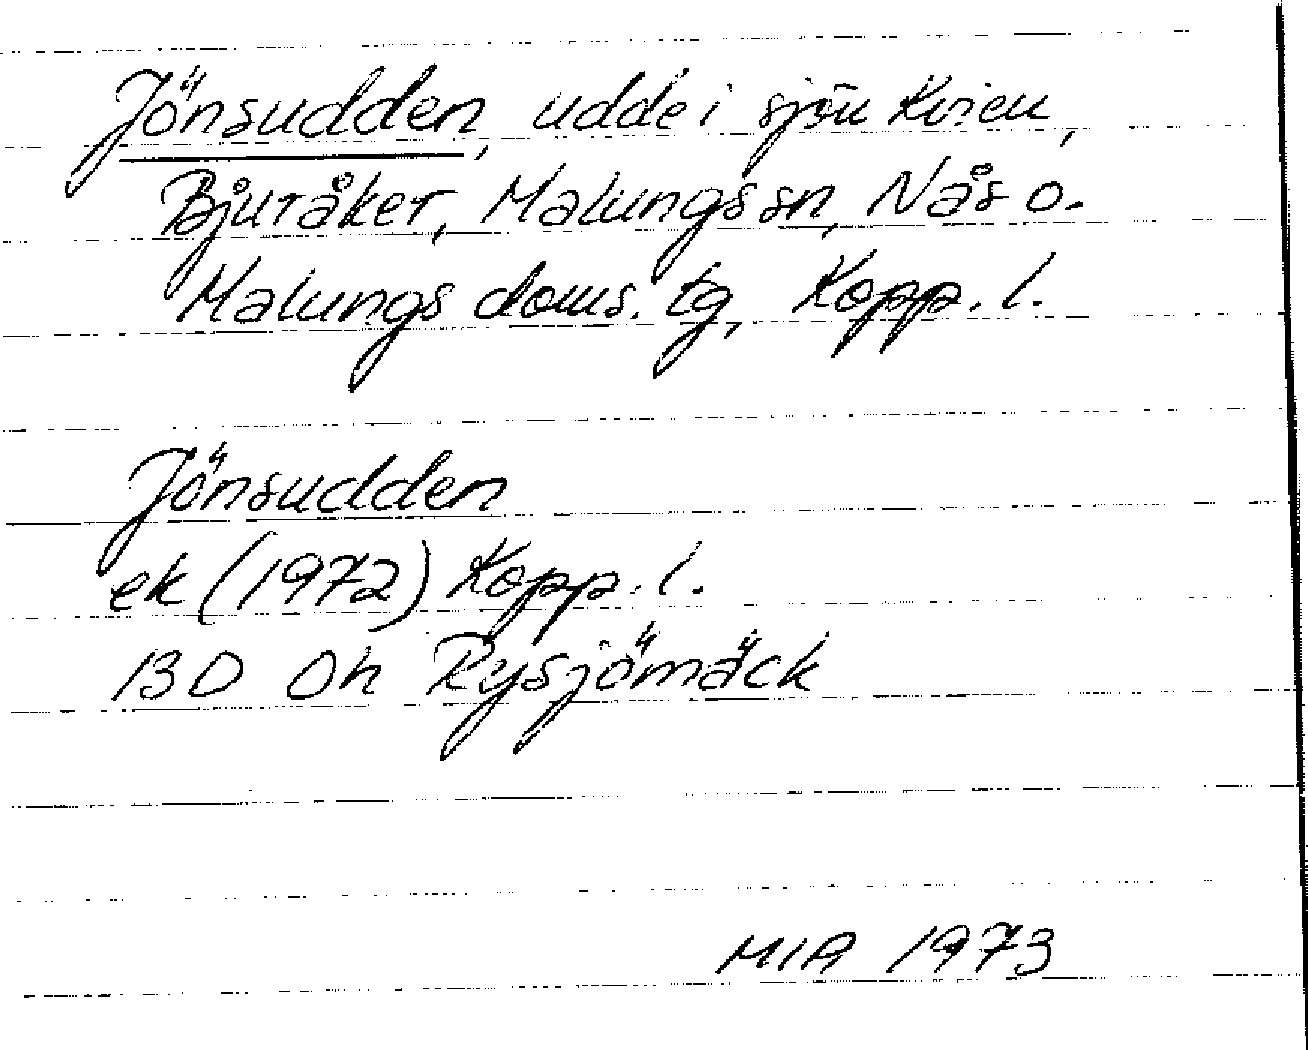 Jönsudden, udde i sjön Kvien,
Bjuråker, Malungs sn, Nås o.
Malungs doms. tg, Kopp. l.
Jönsudden
ek (1972) Kopp. l.
13D 0h Rysjömäck
MIA 1973